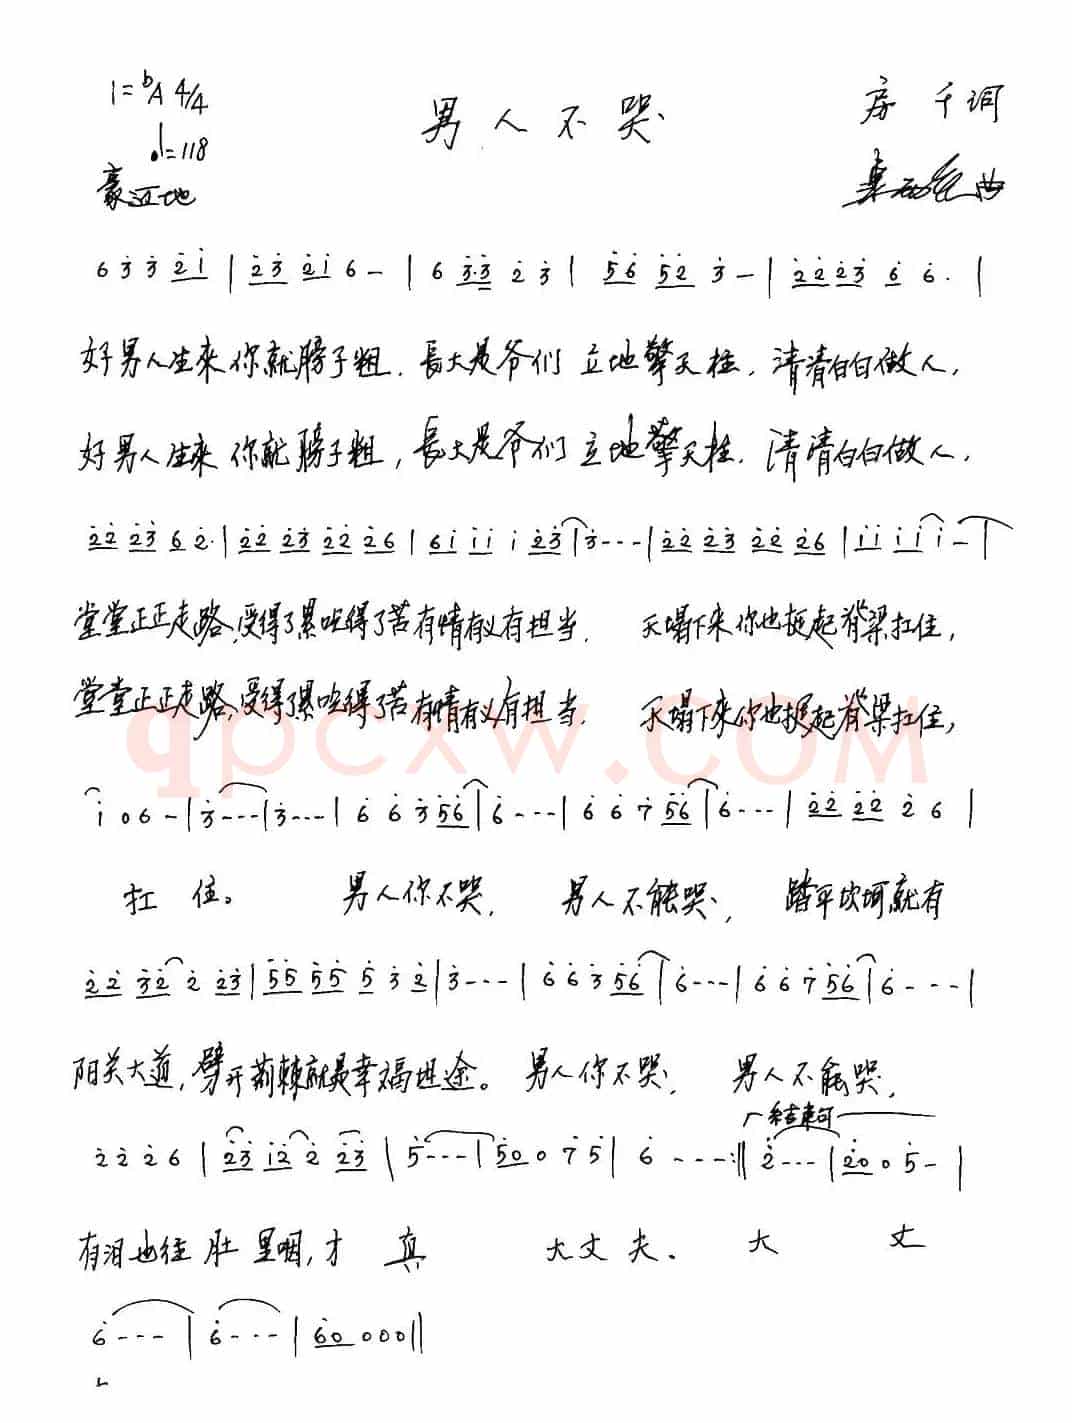 1=ᵇA 4/4
男人不哭
房千词
♩=118
豪迈地
曲
6 3̇ 3̇ 2̇ 1̇ | 2̇ 3̇ 2̇ 1̇ 6 – | 6 3̇·3̇ 2̇ 3̇ | 5̇ 6̇ 5̇ 2̇ 3̇ – | 2̇ 2̇ 2̇ 3̇ 6̇ 6̇· |
好男人生來你就膀子粗,長大是爷们立地擎天柱,清清白白做人,
好男人生来你就膀子粗,長大是爷们立地擎天柱,清清白白做人,
2̇ 2̇ 2̇ 3̇ 6̇ 2̇· | 2̇ 2̇ 2̇ 3̇ 2̇ 2̇ 2̇ 6 | 6 1̇ 1̇ 1̇ 1̇ 2̇ 3̇ | 3̇ - - - | 2̇ 2̇ 2̇ 3̇ 2̇ 2̇ 2̇ 6 | 1̇ 1̇ 1̇ 1̇ 1̇ – |
堂堂正正走路,受得了累吃得了苦有情有义有担当,天塌下来你也挺起脊梁扛住,
堂堂正正走路,受得了累吃得了苦有情有义有担当,天塌下来你也挺起脊梁扛住,
qpcxw.COM
1̇ 0 6 – | 3̇ - - - | 3̇ - - - | 6̇ 6̇ 3̇ 5̇ 6̇ | 6̇ - - - | 6̇ 6̇ 7̇ 5̇ 6̇ | 6̇ - - - | 2̇ 2̇ 2̇ 2̇ 2̇ 6 |
扛住。男人你不哭,男人不能哭,踏平坎坷就有
2̇ 2̇ 3̇ 2̇ 2̇ 2̇ 3̇ | 5̇ 5̇ 5̇ 5̇ 5̇ 3̇ 2̇ | 3̇ - - - | 6̇ 6̇ 3̇ 5̇ 6̇ | 6̇ - - - | 6̇ 6̇ 7̇ 5̇ 6̇ | 6̇ - - - |
阳关大道,劈开荊棘就是幸福坦途。男人你不哭,男人不能哭,
结束句
2̇ 2̇ 2̇ 6 | 2̇ 3̇ 1̇ 2̇ 2̇ 2̇ 3̇ | 5̇ - - - | 5̇ 0 0 7̇ 5̇ | 6̇ - - - :‖ 2̇ - - - | 2̇ 0 0 5̇ – |
有泪也往肚里咽,才真大丈夫。大丈
6̇ - - - | 6̇ - - - | 6̇ 0 0 0 0 ‖